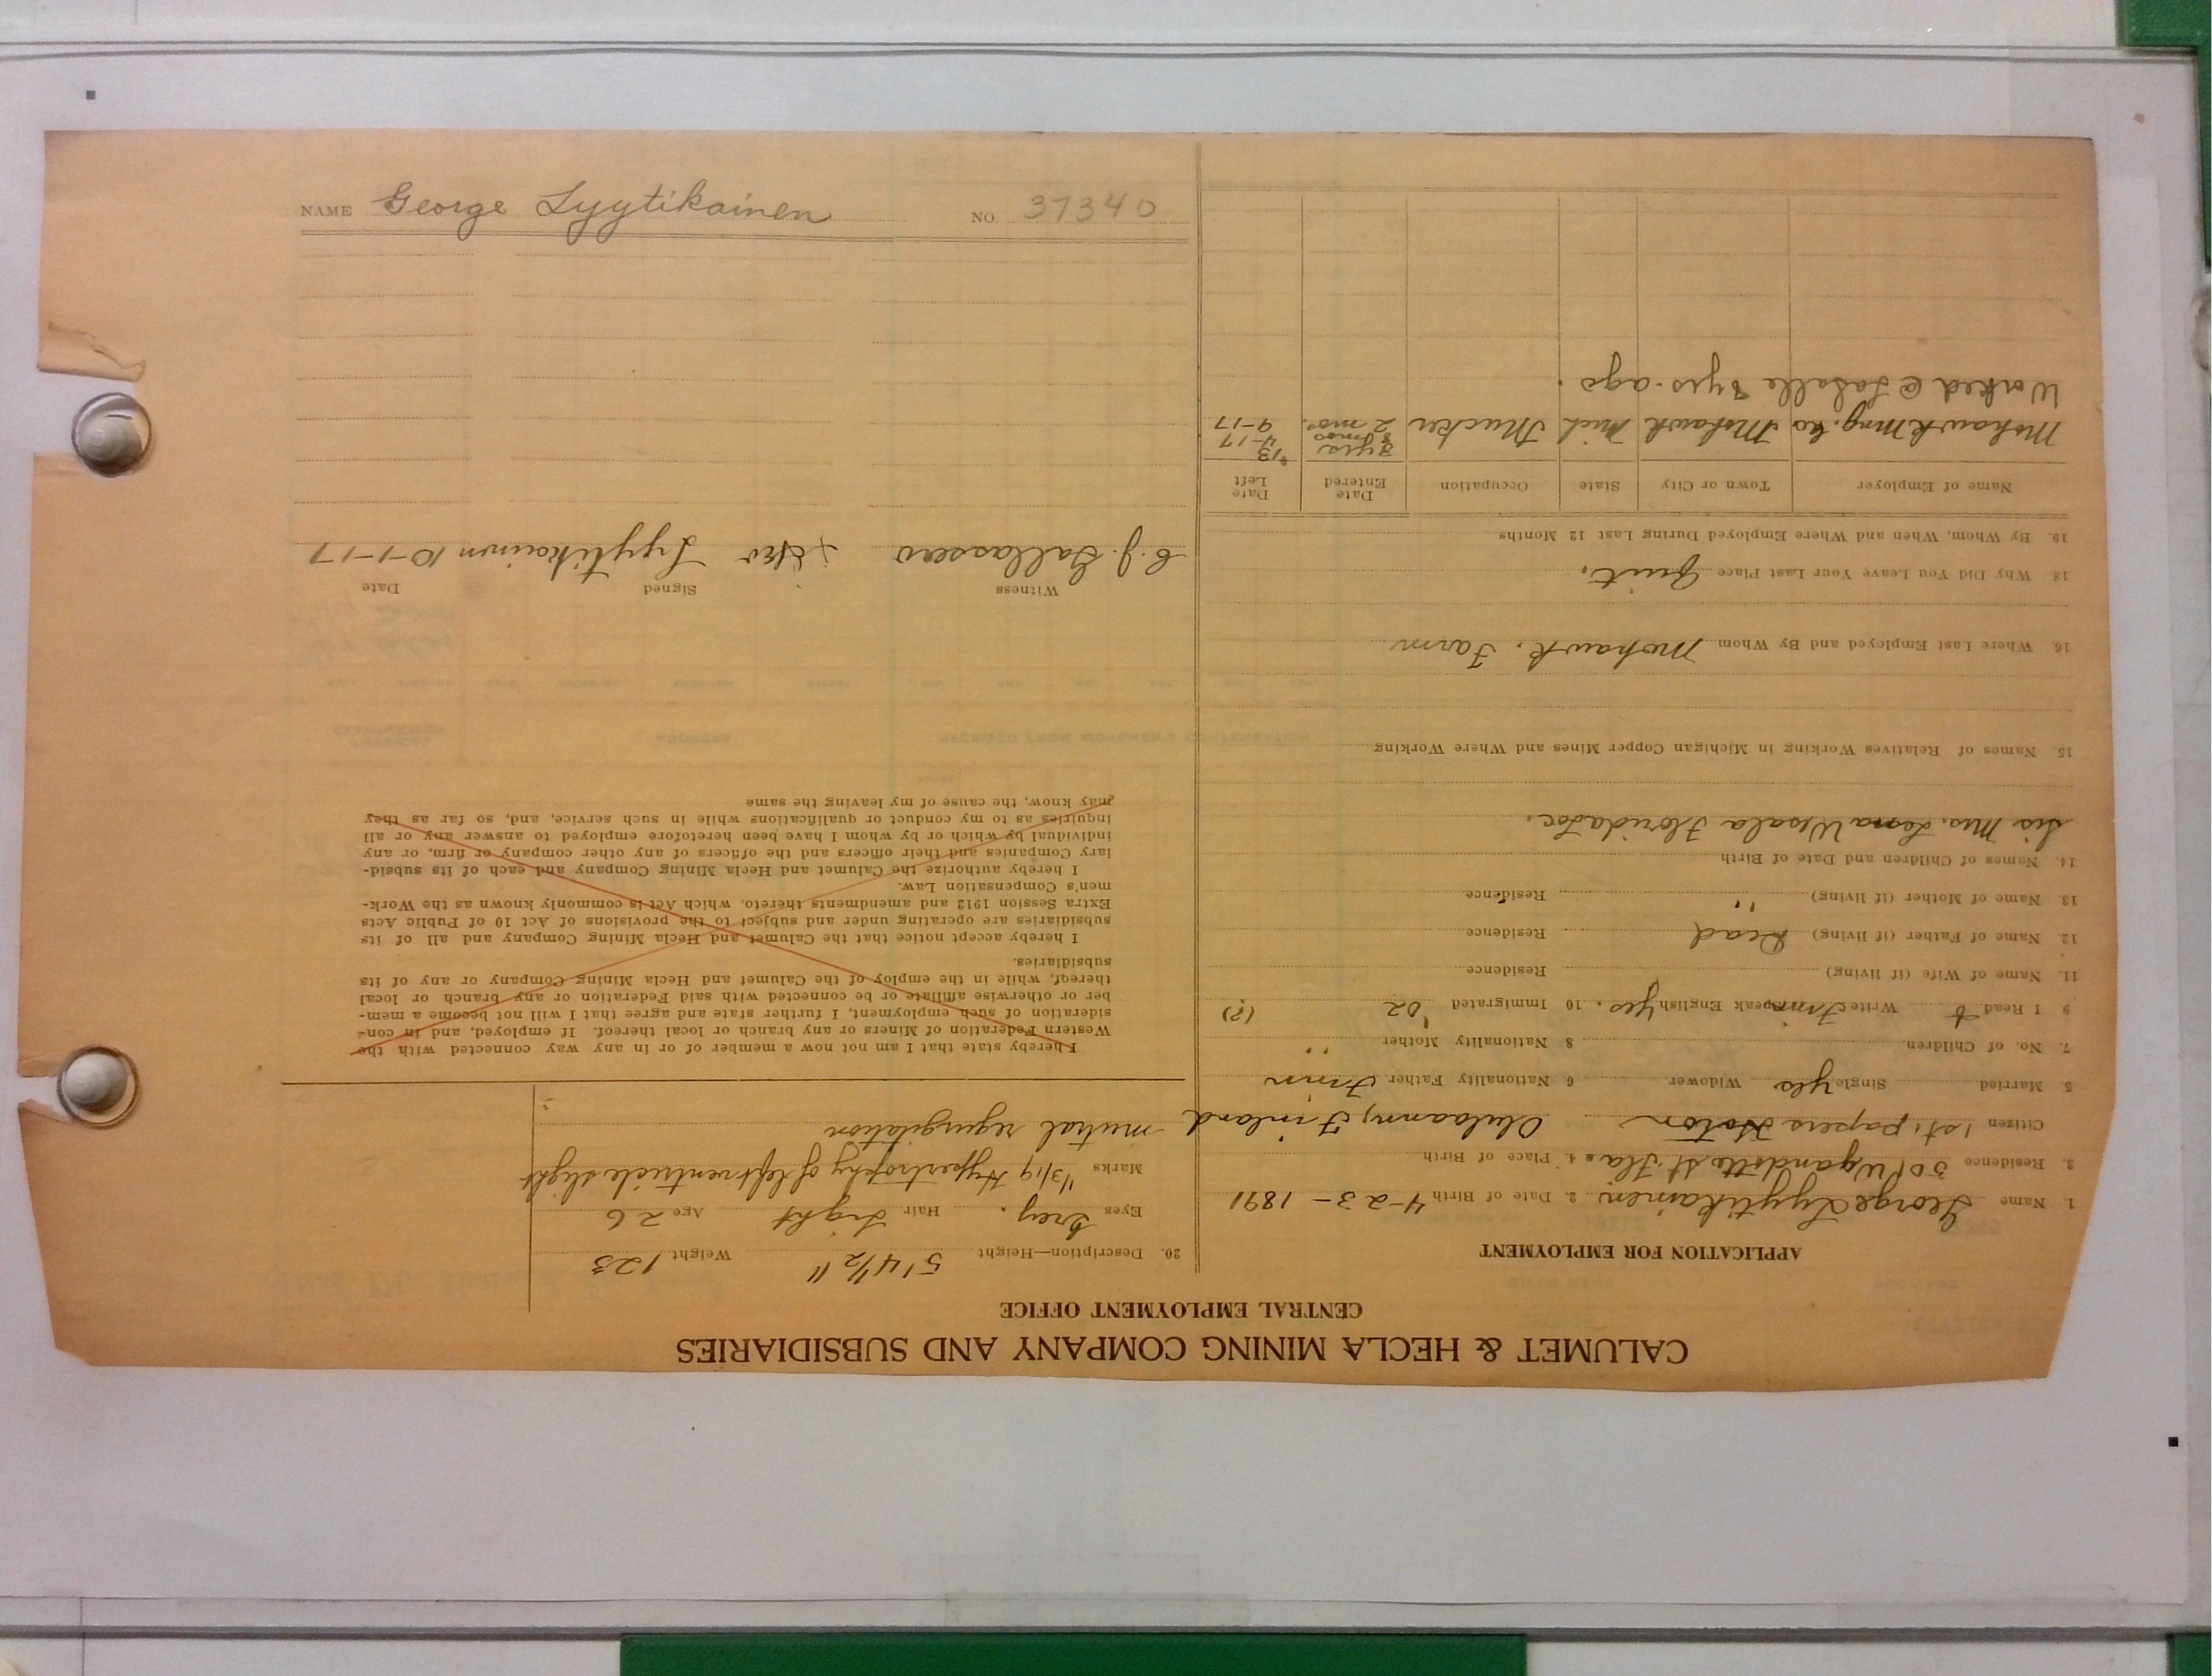 NAME George Lyytikainen NO 37340
CALUMET & HECLA MINING COMPANY AND SUBSIDIARIES
CENTRAL EMPLOYMENT OFFICE
APPLICATION FOR EMPLOYMENT
1. Name George Lyytikainen 2. Date of Birth 4-23-1891
3. Residence 301 Wyandotte St. Fla. 4. Place of Birth
Citizen 1st papers Finland
5. Married Single Yes Widower 6. Nationality Father Finn
7. No. of Children 8 Nationality Mother "
9 I Read & Write Finn Speak English Yes. 10 Immigrated '02 (?)
11. Name of Wife (if living) Residence
12. Name of Father (if living) Dead Residence
13. Name of Mother (if living) " Residence
14. Names of Children and Date of Birth
Sis Mrs. Wsala Florida Loc.
15. Names of Relatives Working in Michigan Copper Mines and Where Working
16. Where Last Employed and By Whom Mohawk. Farm
18. Why Did You Leave Your Last Place Quit.
19. By Whom, When and Where Employed During Last 12 Months
Name of Employer Town or City State Occupation Date Entered Date Left
3 yrs '13
8 mos 4-17
Mohawk Mng. Co Mohawk Mich Mucker 2 mos. 9-17
Worked @ LaSalle 3 yrs. ago.
20. Description—Height 5' 4 1/2" Weight 123
Eyes Grey. Hair Light Age 26
Marks 1/3/19 Hypertrophy of left ventricle slight
mitral regurgitation
I hereby state that I am not now a member of or in any way connected with the
Western Federation of Miners or any branch or local thereof. If employed, and in con-
sideration of such employment, I further state and agree that I will not become a mem-
ber or otherwise affiliate or be connected with said Federation or any branch or local
thereof, while in the employ of the Calumet and Hecla Mining Company or any of its
subsidiaries.
I hereby accept notice that the Calumet and Hecla Mining Company and all of its
subsidiaries are operating under and subject to the provisions of Act 10 of Public Acts
Extra Session 1912 and amendments thereto. which Act is commonly known as the Work-
men's Compensation Law.
I hereby authorize the Calumet and Hecla Mining Company and each of its subsid-
iary Companies and their officers and the officers of any other company or firm, or any
individual by which or by whom I have been heretofore employed to answer any or all
inquiries as to my conduct or qualifications while in such service, and, so far as they
may know, the cause of my leaving the same
Witness Signed Date
Lyytikainen 10-1-17